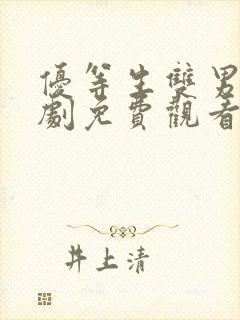 優等生雙男
劇免費觀看
井上清